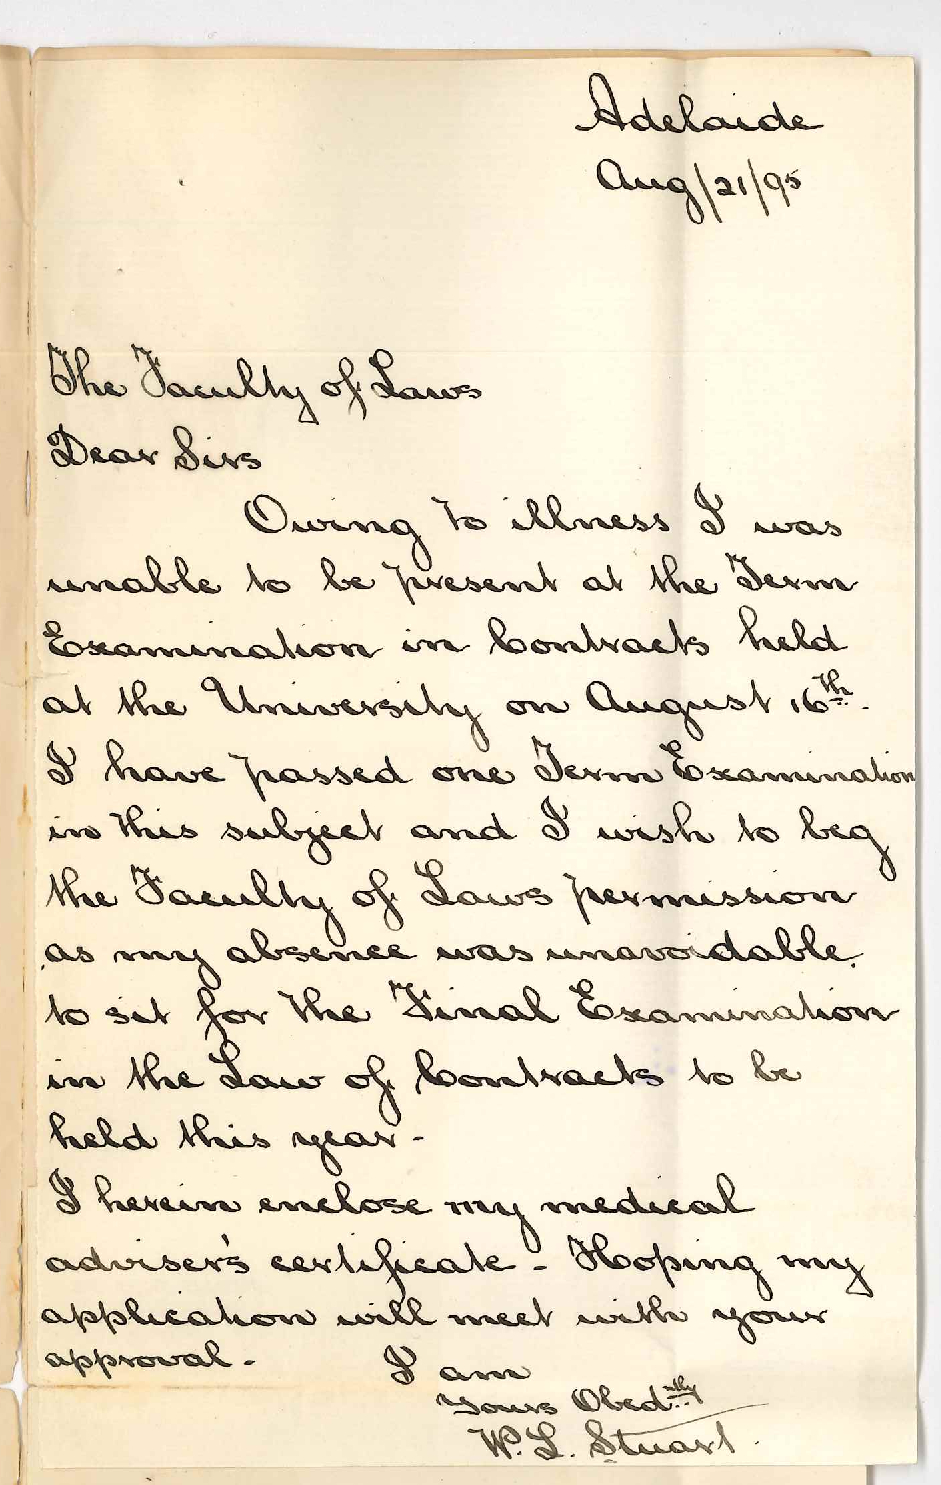 Adelaide
Aug/21/95
The Faculty of Laws
Dear Sirs
Owing to illness I was
unable to be present at the Term
Examination in Contracts held
at the University on August 16th.
I have passed one Term Examination
in this subject and I wish to beg
the Faculty of Laws permission
as my absence was unavoidable,
to sit for the Final Examination
in the Law of Contracts to be
held this year -
I herein enclose my medical
adviser's certificate - Hoping my
application will meet with your
approval - I am
Yours Obedntly
W. L. Stuart.